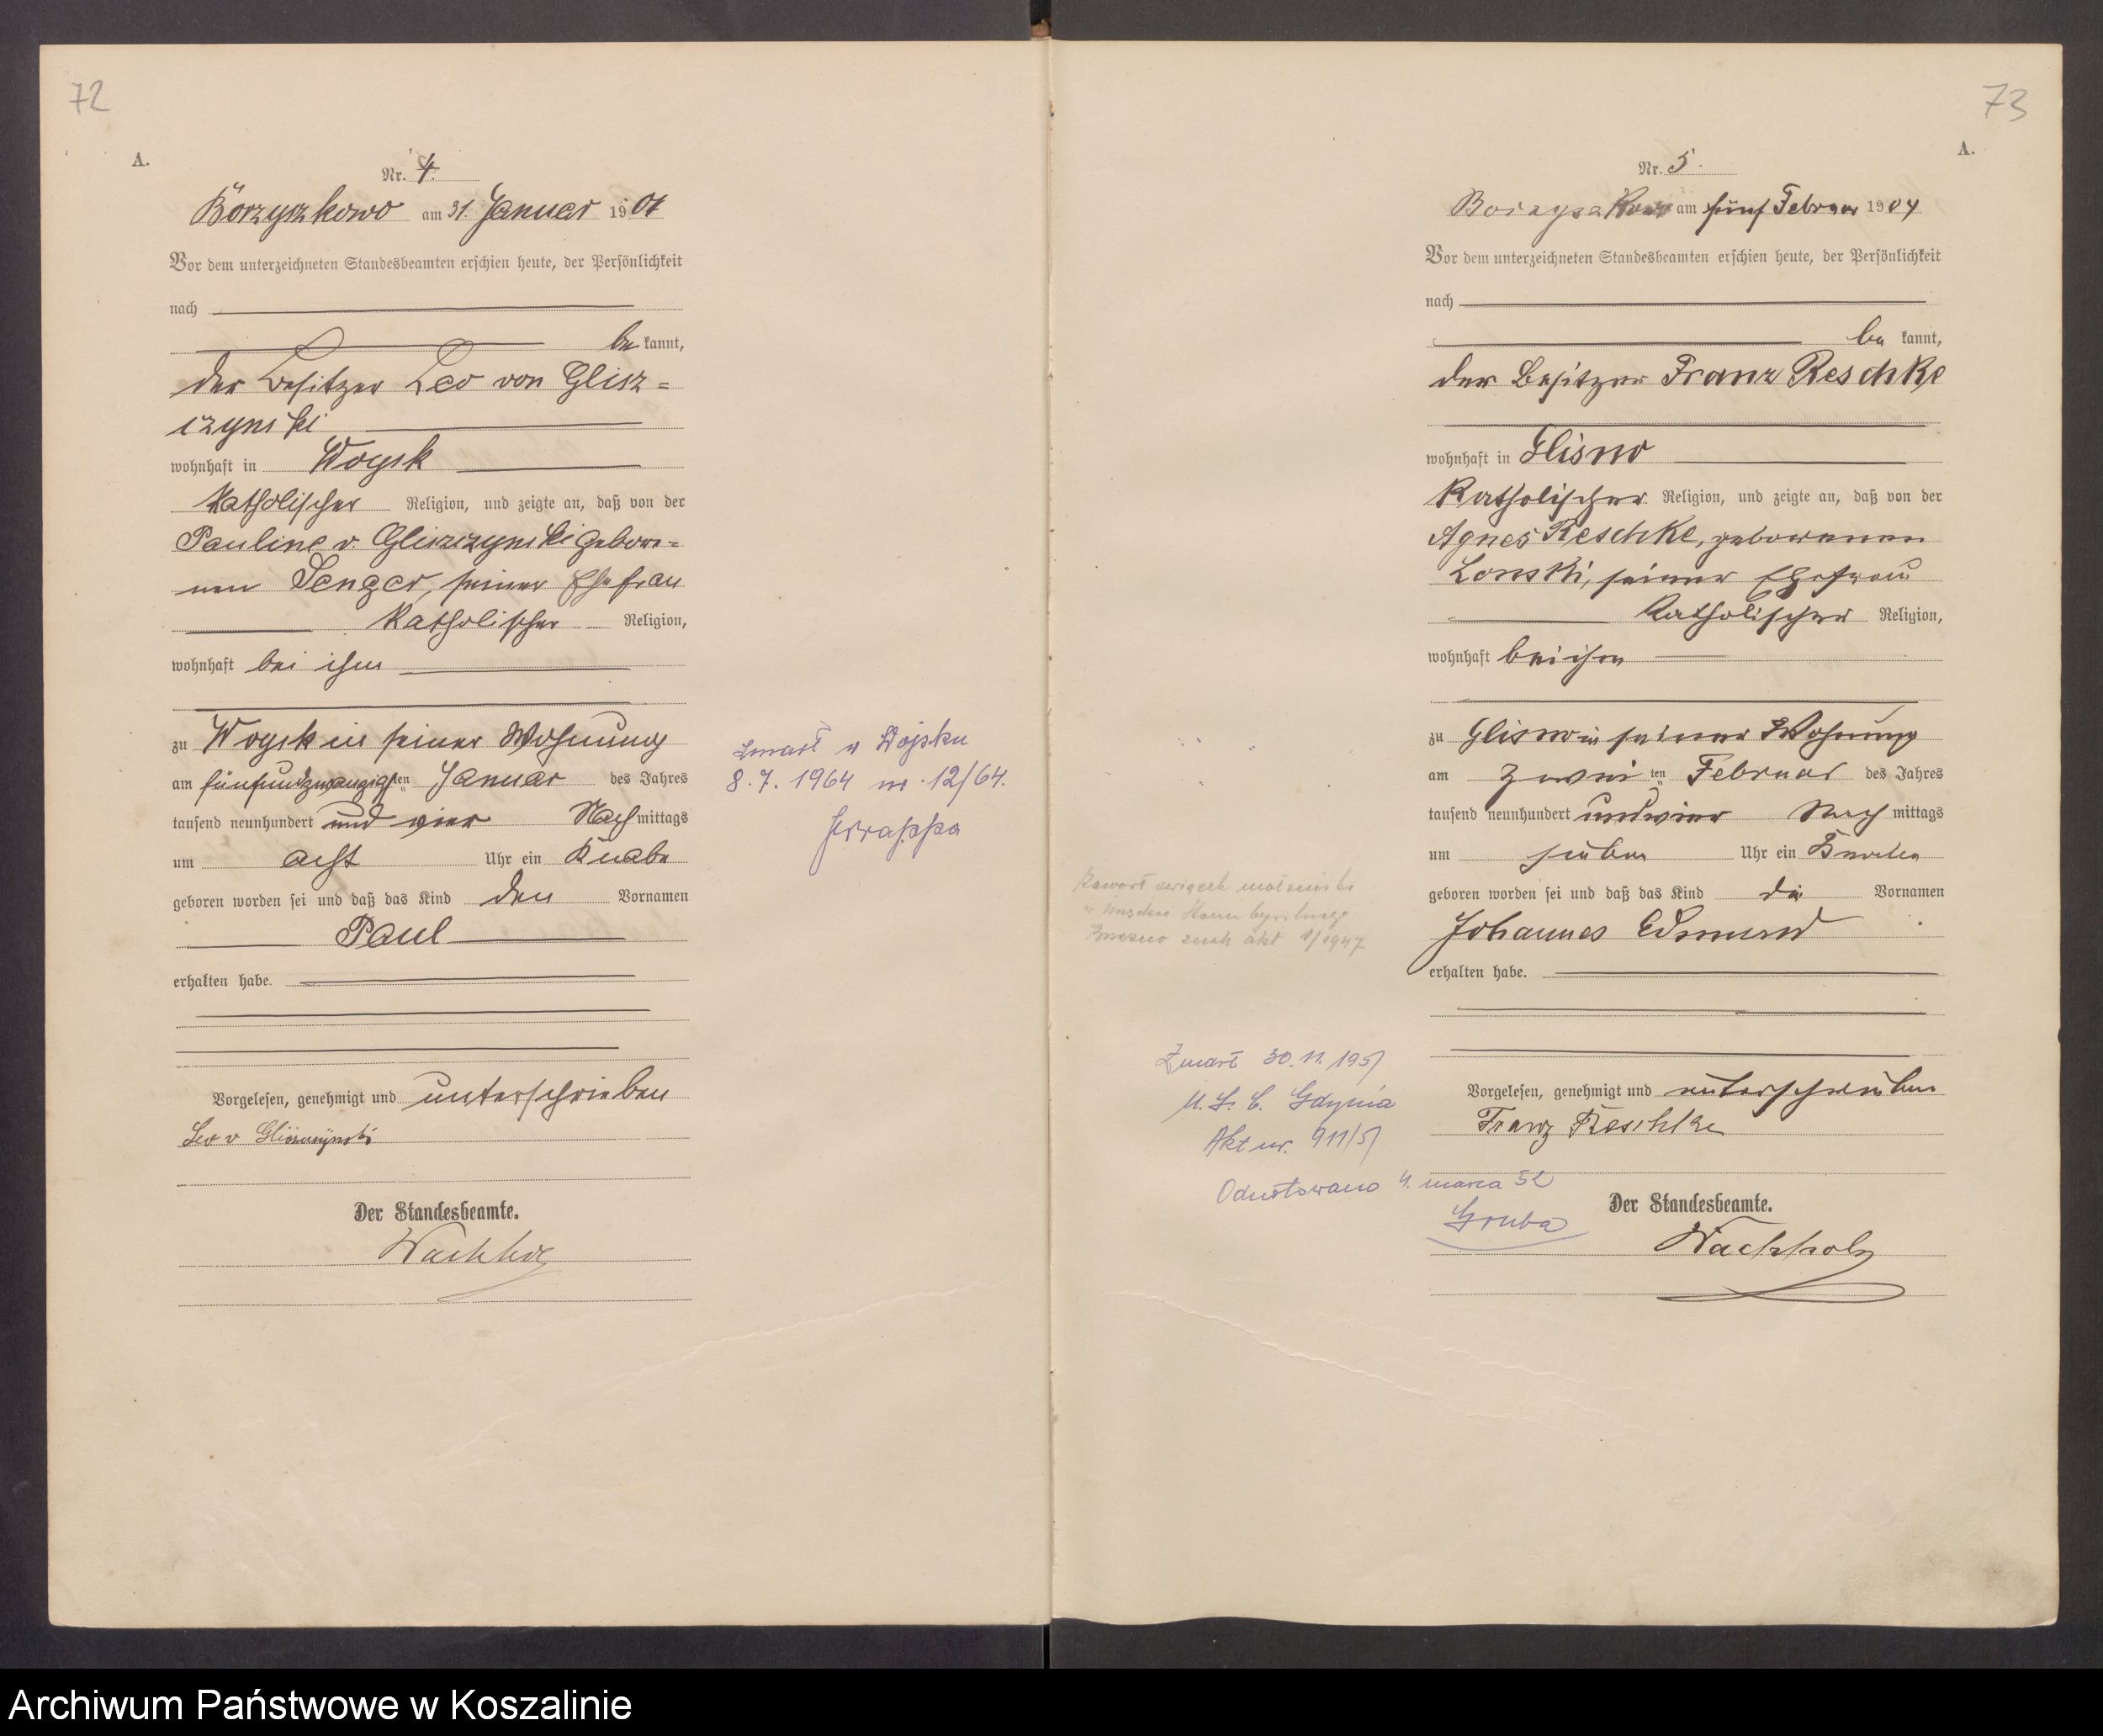 72
A.
Nr. 4.
Borzyszkowo am 31. Januar 1904
Vor dem unterzeichneten Standesbeamten erschien heute, der Persönlichkeit
nach
be kannt,
der Besitzer Leo von Glisz=
czynski
wohnhaft in Woysk
katholischer Religion, und zeigte an, daß von der
Pauline v. Gliszczynski gebore=
nen Senger, seiner Ehefrau
katholischer Religion,
wohnhaft bei ihm
zu Woysk in seiner Wohnung
am fünfundzwanzigsten Januar des Jahres
tausend neunhundert und vier Nachmittags
um acht Uhr ein Knabe
geboren worden sei und daß das Kind den Vornamen
Paul
erhalten habe.
Vorgelesen, genehmigt und unterschrieben
Leo v Gliszczynski
Der Standesbeamte.
Wachholz
zmarł w Wojsku
8.7.1964 nr. 12/64.
73
A.
Nr. 5.
Borzyszkowo am fünf Februar 1904
Vor dem unterzeichneten Standesbeamten erschien heute, der Persönlichkeit
nach
be kannt,
der Besitzer Franz Reschke
wohnhaft in Glisno
katholischer Religion, und zeigte an, daß von der
Agnes Reschke, geborenen
Lonski, seiner Ehefrau
katholischer Religion,
wohnhaft bei ihm
zu Glisno in seiner Wohnung
am zweiten Februar des Jahres
tausend neunhundert und vier Nachmittags
um sieben Uhr ein Knabe
geboren worden sei und daß das Kind die Vornamen
Johannes Edmund
erhalten habe.
Vorgelesen, genehmigt und unterschrieben
Franz Reschke
Der Standesbeamte.
Wachholz
Zawarł związek małżeński
akt 1/1947
Zmarł 30.11.1951
U.S.C. Gdynia
Akt nr. 911/51
Odnotowano 4. marca 52
Gruba
Archiwum Państwowe w Koszalinie